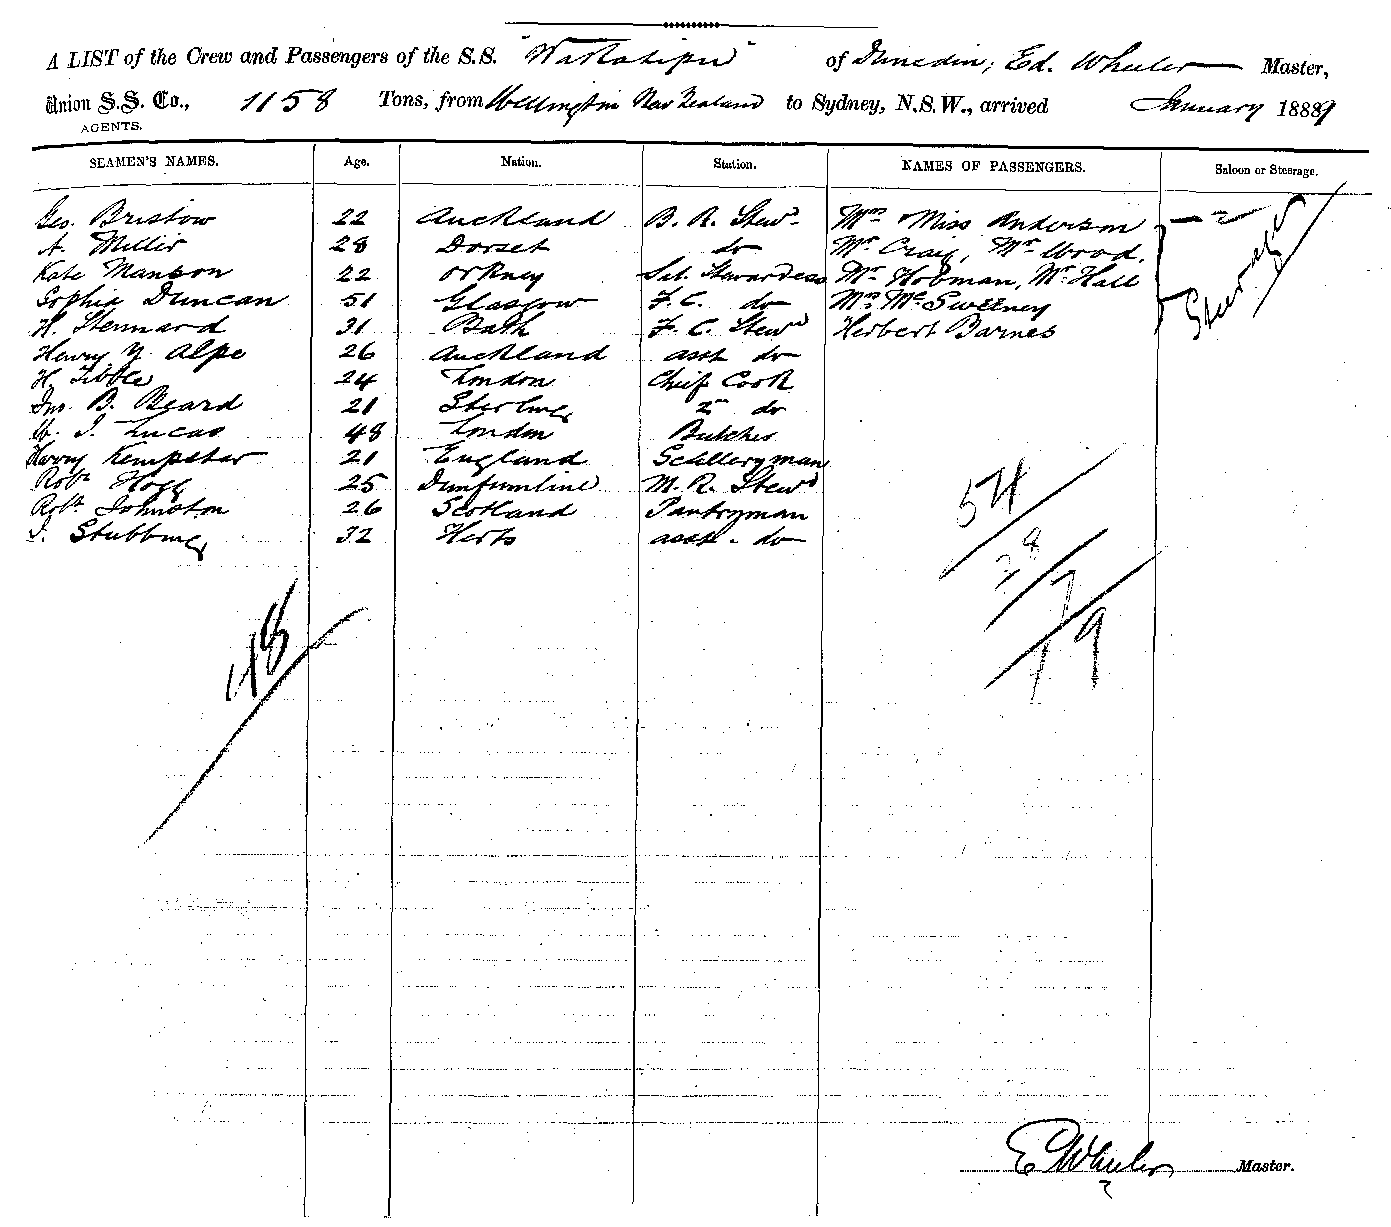 A LIST of the Crew and Passengers of the S.S. "Wakatipu" of Dunedin, Ed. Wheeler Master,
Union S.S. Co., 1158 Tons, from Wellington New Zealand to Sydney, N.S.W., arrived January 1889
AGENTS.
SEAMEN'S NAMES. Age. Nation. Station. NAMES OF PASSENGERS. Saloon or Steerage.
Geo. Bristow 22 Auckland B. R. Stewd Mrs Miss Anderson — 2
A. Miller 28 Dorset do Mr Craig, Mr Wood. Steerage
Kate Manson 22 Orkney Sal. Stewardess Mr Hobman, Mr Hall
Sophia Duncan 51 Glasgow F. C. do Mrs McSweeney
H. Stennard 31 Bath F. C. Stewd Herbert Barnes
Henry Y. Alpe 26 Auckland asst do
H. Tibble 24 London Chief Cook
Jno. B. Beard 21 Sterling 2nd do
W. J. Lucas 48 London Butcher
Harry Kempster 21 England Scilleryman
Robt Hogg 25 Dunfumline M. R. Stewd
Robt Johnston 26 Scotland Pantryman
J. Stubbing 32 Herts asst. do
54
28
7
19
48
E Wheeler Master.